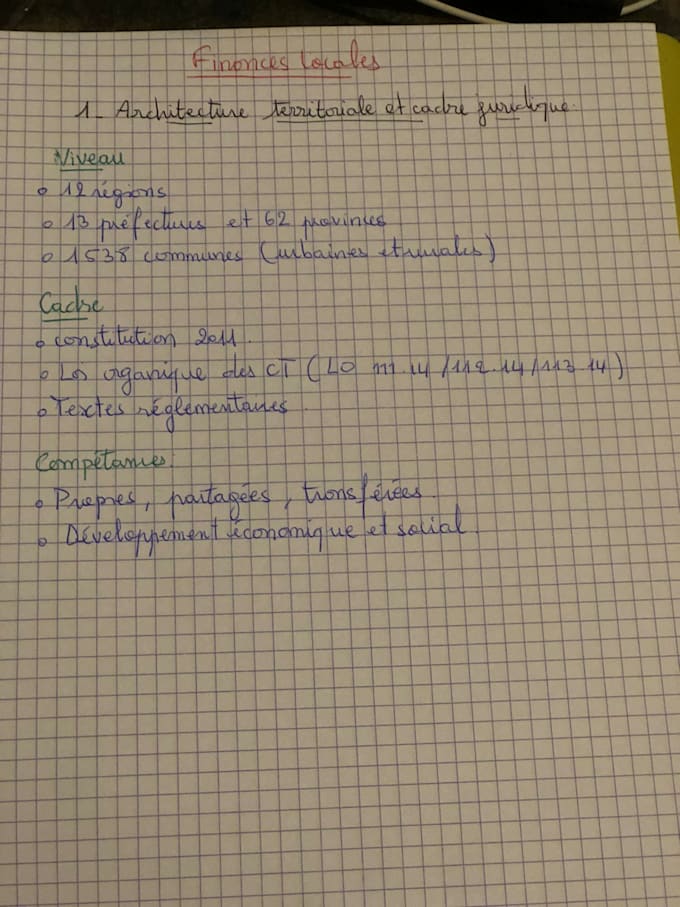 Finances Locales
1_ Architecture territoriale et cadre juridique.
Niveau
o 12 régions
o 13 préfectures et 62 provinces
o 1538 communes (urbaines et rurales)
Cadre
o constitution 2011.
o Loi organique des CT (LO 111.14 /112.14 /113.14)
o Textes réglementaires.
Compétances:
o Propres, partagées, transférées.
o Développement économique et social.